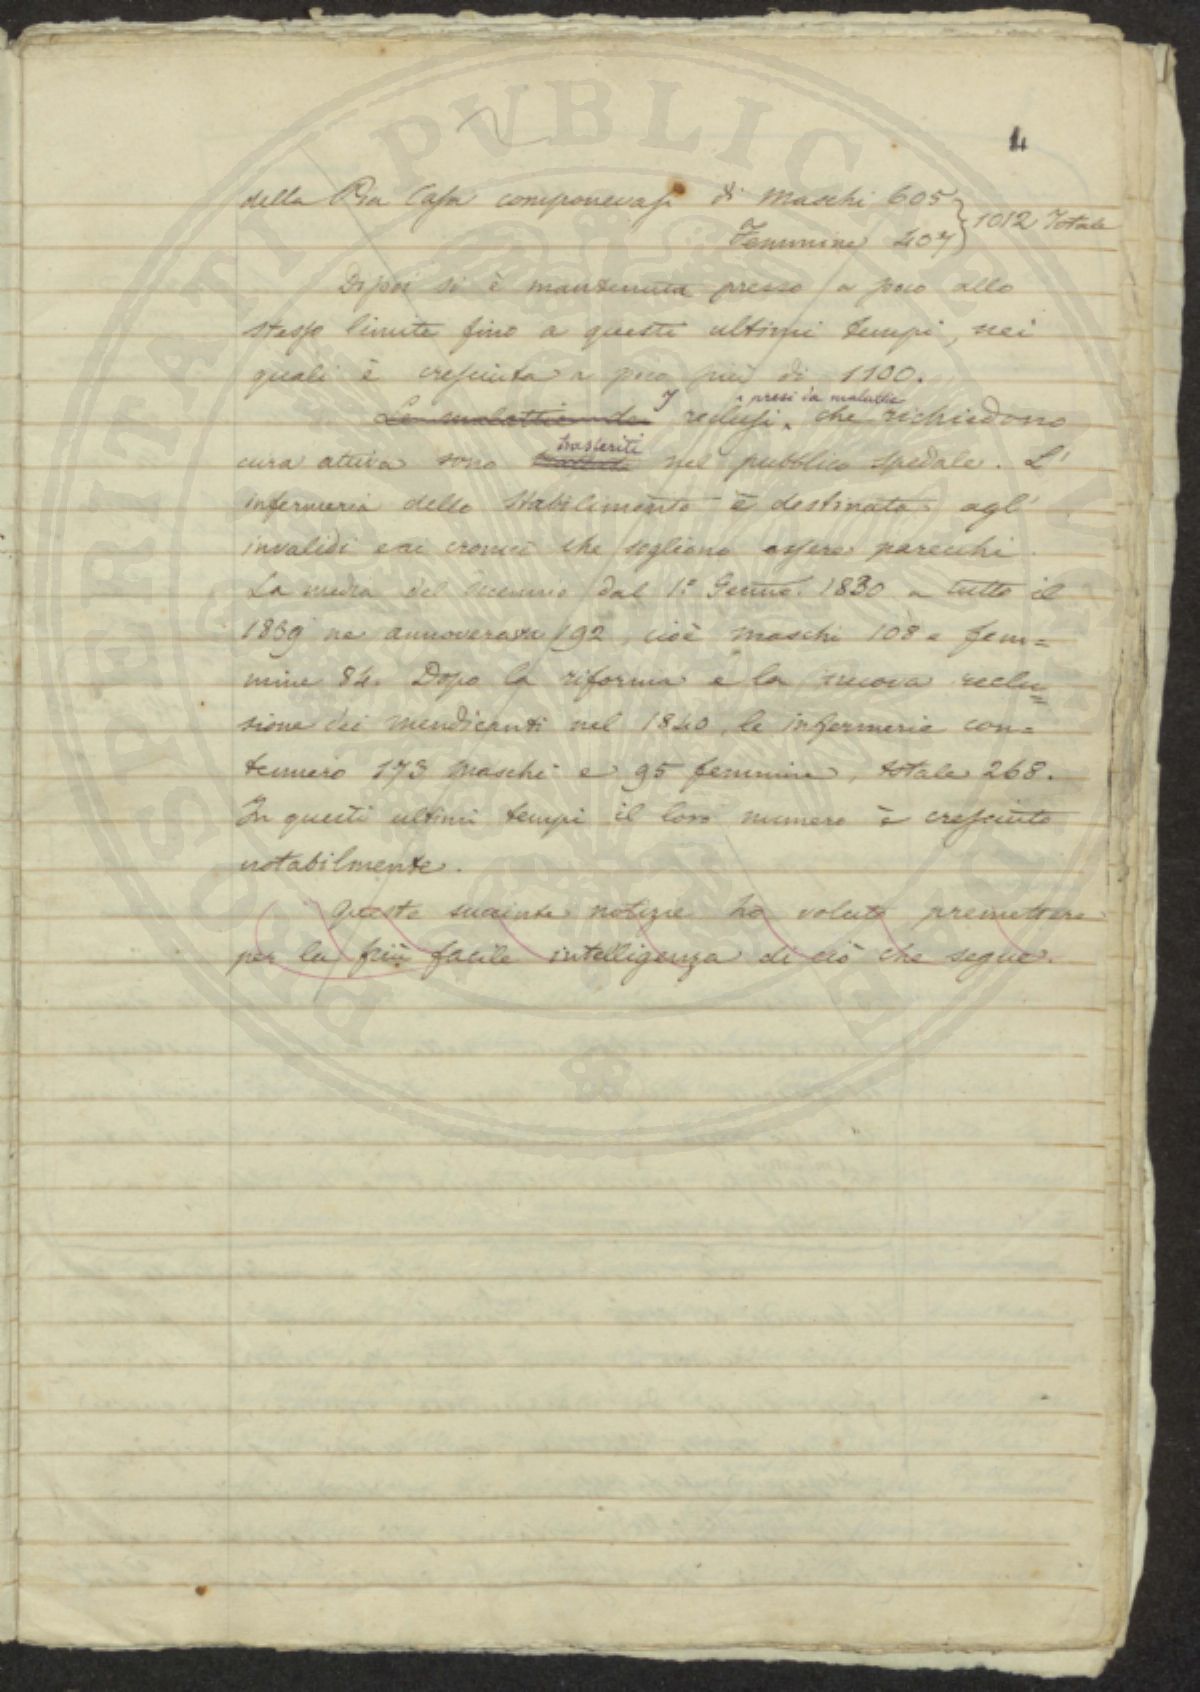 4
della Pia Casa componevasi di Maschi 605 } 1012 Totale
Femmine 407
Dipoi si è mantenuta presso a poco allo
stesso limite fino a questi ultimi tempi, nei
quali è cresciuta a poco più di 1100.
Le malattie dei I reclusi, presi da malattie che richiedono
cura attiva sono trasferiti nel pubblico spedale. L'
infermeria dello Stabilimento è destinata agl'
invalidi e ai cronici che sogliono essere parecchi.
La media del decennio dal 1º Genno. 1830 a tutto il
1839 ne annoverava 192, cioè maschi 108 e fem=
mine 84. Dopo la riforma e la nuova reclu=
sione dei mendicanti nel 1840, le infermerie con=
tennero 173 maschi e 95 femmine, totale 268.
In questi ultimi tempi il loro numero è cresciuto
notabilmente.
Queste succinte notizie ho voluto premettere
per la più facile intelligenza di ciò che segue.